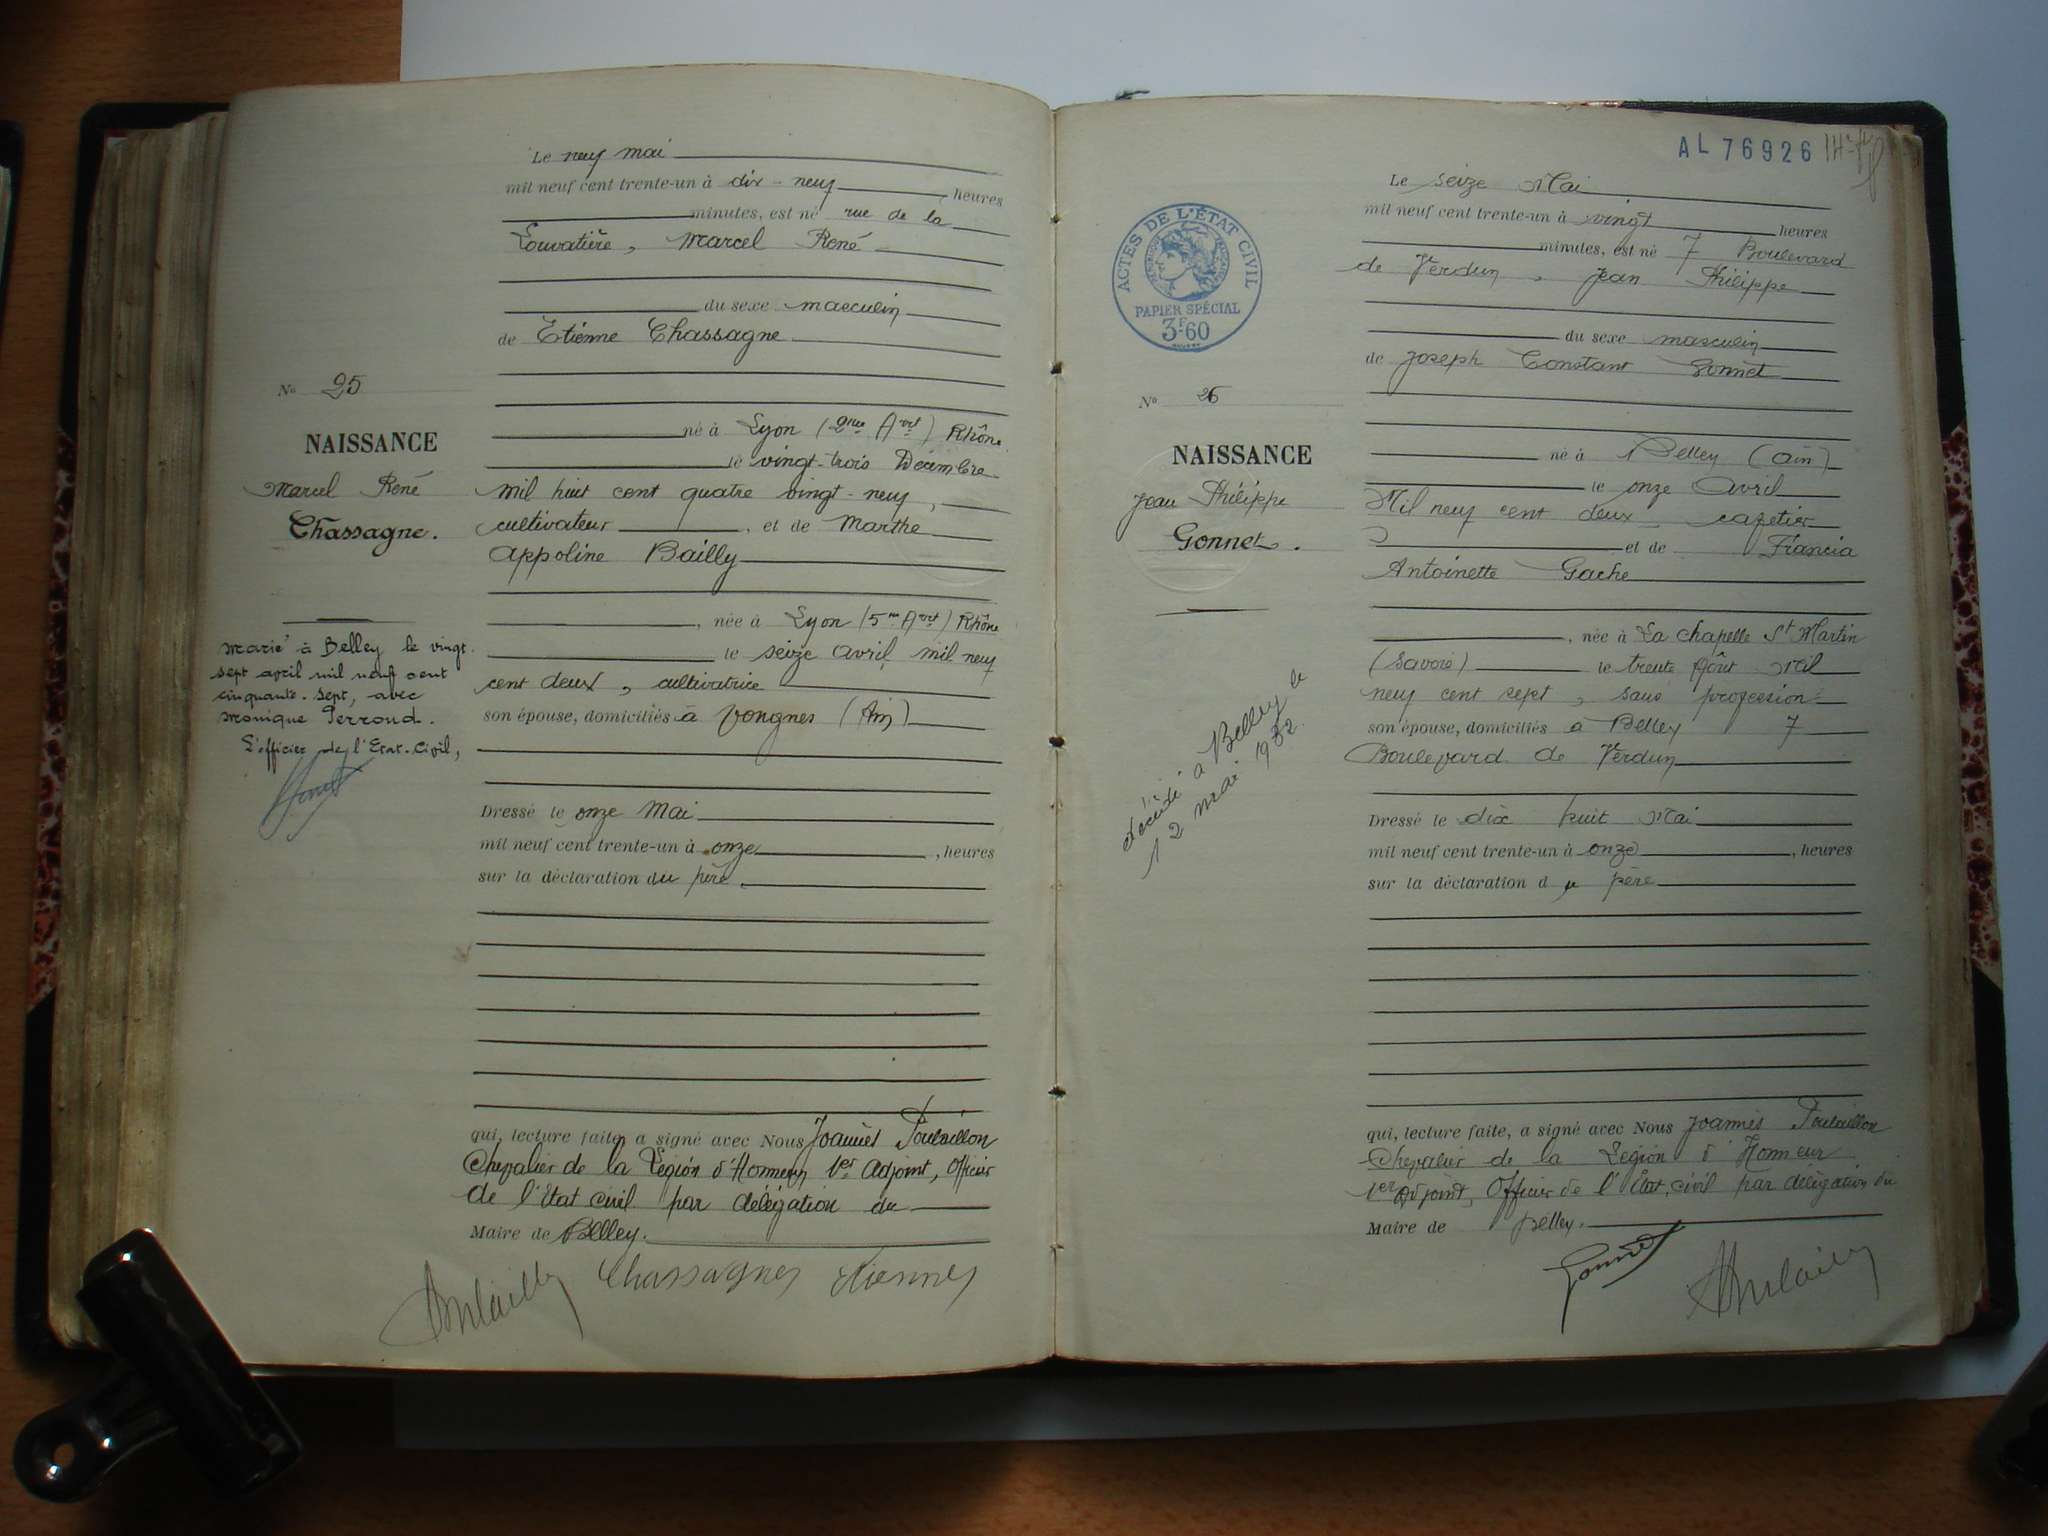 Le neuf mai
mil neuf cent trente-un à dix-neuf heures
minutes, est né rue de la
Louvatière, Marcel René
du sexe masculin
de Etienne Chassagne
né à Lyon (2me Arrt) Rhône
le vingt-trois Décembre
mil huit cent quatre vingt-neuf,
cultivateur, et de Marthe
Appoline Bailly
, née à Lyon (5me Arrt) Rhône
le seize avril mil neuf
cent deux, cultivatrice
son épouse, domiciliés à Vongnes (Ain)
Dressé le onze Mai
mil neuf cent trente-un à onze, heures
sur la déclaration du père.
qui, lecture faite, a signé avec Nous Joannès Poulaillon
Chevalier de la Légion d'Honneur 1er Adjoint, Officier
de l'Etat civil par délégation du
Maire de Belley.
Chassagne Etienne
No 25
NAISSANCE
Marcel René
Chassagne.
Marié à Belley le vingt
sept avril mil neuf cent
cinquante-sept, avec
Monique Perroud.
L'officier de l'Etat-Civil,
AL 76926
ACTES DE L'ÉTAT CIVIL
PAPIER SPÉCIAL
3F60
Le seize Mai
mil neuf cent trente-un à vingt heures
minutes, est né 7 Boulevard
de Verdun, Jean Philippe
du sexe masculin
de Joseph Constant Gonnet
né à Belley (Ain)
le onze Avril
Mil neuf cent deux cafetier
et de Francia
Antoinette Gache
, née à La Chapelle St Martin
(Savoie) le trente Août Mil
neuf cent sept, sans profession
son épouse, domiciliés à Belley 7
Boulevard de Verdun
Dressé le dix huit Mai
mil neuf cent trente-un à onze, heures
sur la déclaration du père
qui, lecture faite, a signé avec Nous Joannès Poulaillon
Chevalier de la Légion d'Honneur
1er Adjoint, Officier de l'Etat civil par délégation du
Maire de Belley.
Gonnet
No 26
NAISSANCE
Jean Philippe
Gonnet.
décédé à Belley le
12 mai 1982